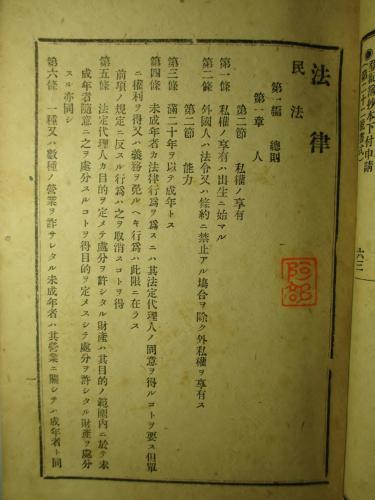 法律
民法
第一編 總則
第一章 人
第一節 私權ノ享有
第一條 私權ノ享有ハ出生ニ始マル
第二條 外國人ハ法令又ハ條約ニ禁止アル場合ヲ除ク外私權ヲ享有ス
第二節 能力
第三條 滿二十年ヲ以テ成年トス
第四條 未成年者カ法律行爲ヲ爲スニハ其法定代理人ノ同意ヲ得ルコトヲ要ス但單
ニ權利ヲ得又ハ義務ヲ免ルヘキ行爲ハ此限ニ在ラス
前項ノ規定ニ反スル行爲ハ之ヲ取消スコトヲ得
第五條 法定代理人カ目的ヲ定メテ處分ヲ許シタル財產ハ其目的ノ範圍內ニ於テ未
成年者隨意ニ之ヲ處分スルコトヲ得目的ヲ定メスシテ處分ヲ許シタル財產ヲ處分
スル亦同シ
第六條 一種又ハ數種ノ營業ヲ許サレタル未成年者ハ其營業ニ關シテハ成年者ト同
一
阿部
六三